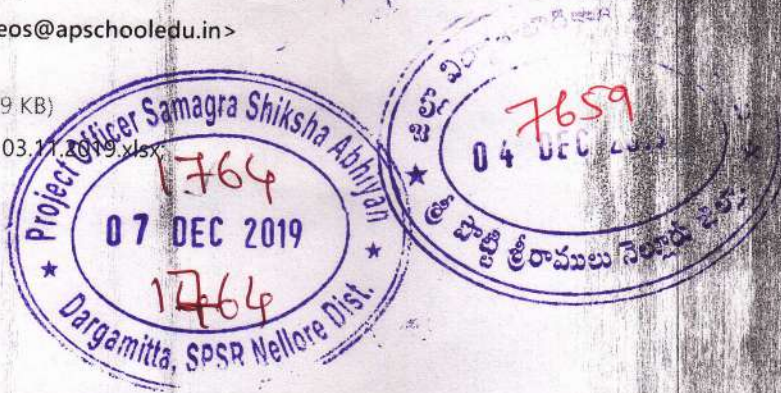 eos@apschooledu.in>
9 KB)
03.11.2019.xlsx;
Project Officer Samagra Shiksha Abhiyan
1764
07 DEC 2019
1764
★ Dargamitta, SPSR Nellore Dist. ★
జిల్లా
7659
04 DEC
★ శ్రీ పొట్టి శ్రీరాములు నెల్లూరు జిల్లా ★